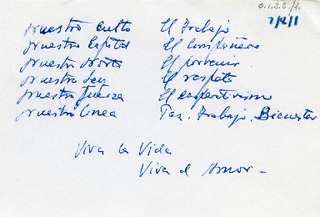 nuestro culto El Trabajo
nuestro Capital El compañero
nuestro Norte El porvenir
nuestra Ley El respeto
nuestra fuerza El cooperativismo
nuestra linea Paz. Trabajo, Bienestar
Viva la Vida
Viva el Amor -